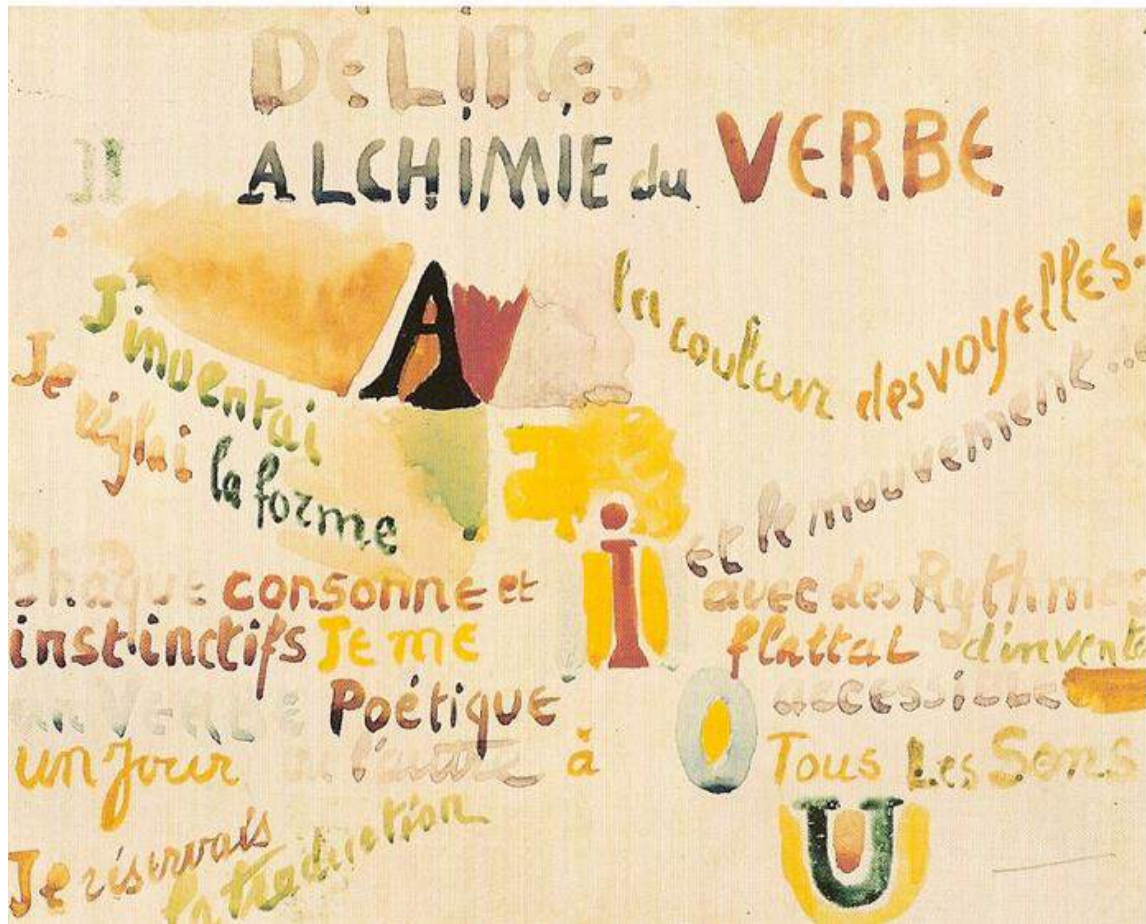 DÉLIRES
II ALCHIMIE du VERBE
J'inventai A la couleur des voyelles!
Je réglai la forme et le mouvement...
Chaque consonne et i avec des Rythmes
instinctifs Je me flattai d'invente
un VERBE Poétique O accessible
un Jour ou l'autre à Tous Les Sens
U
Je réservais
la traduction